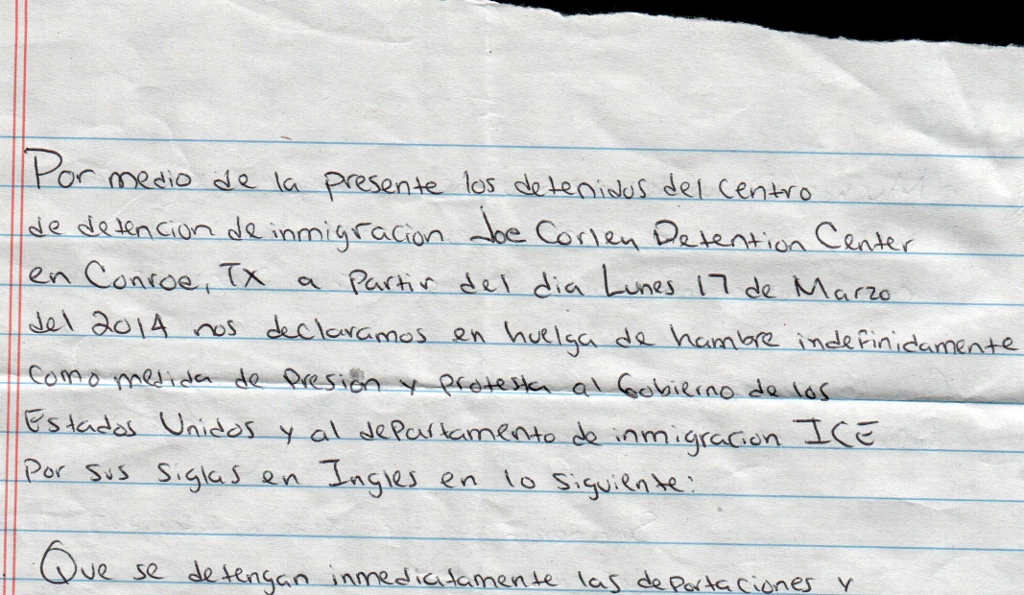 Por medio de la presente los detenidos del centro
de detencion de inmigracion Joe Corley Detention Center
en Conroe, TX a partir del dia Lunes 17 de Marzo
del 2014 nos declaramos en huelga de hambre indefinidamente
como medida de presion y protesta al Gobierno de los
Estados Unidos y al departamento de inmigracion ICE
por sus siglas en Ingles en lo siguiente:
Que se detengan inmediatamente las deportaciones y